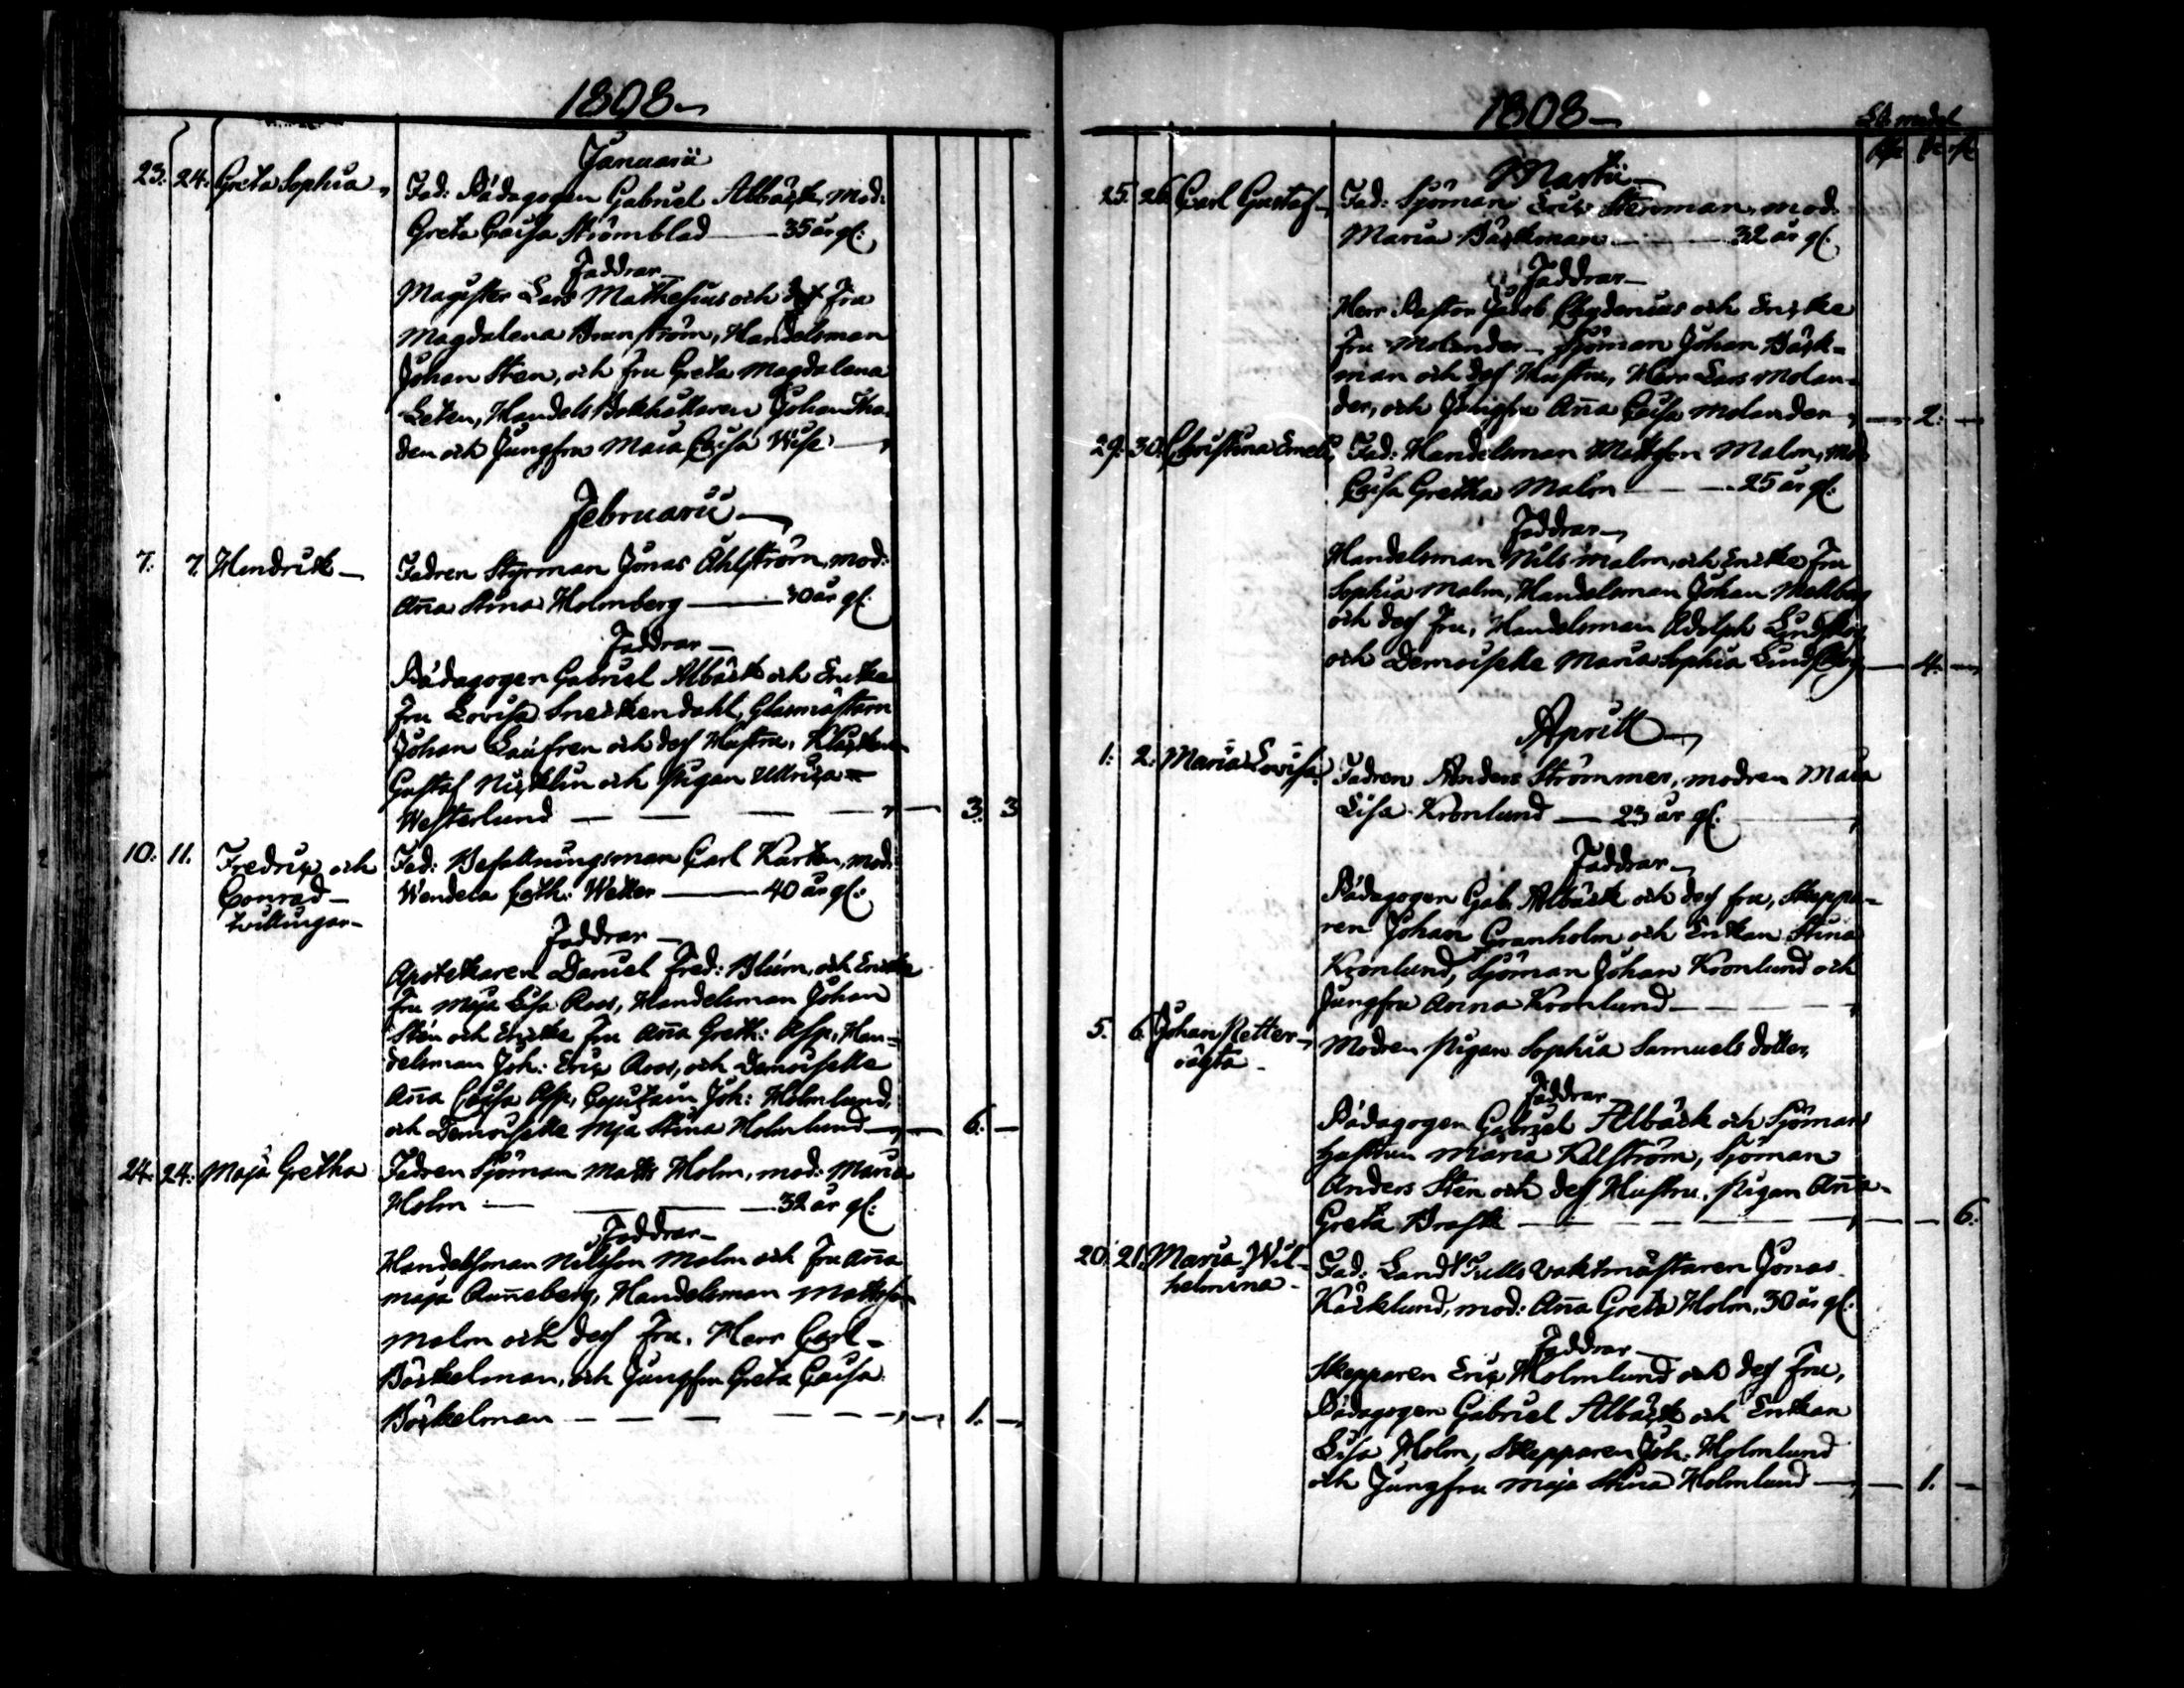 1808
Januarii
23. 24. Greta Sophia Fad: Pädagogen Gabriel Albäck, mod:
Greta Caisa Strömblad — 35 år gl:
Faddrar
Magister Lars Mathesius och Fru
Magdalena Brunström, Handelsman
Johan Sten, och Fru Greta Magdalena
Leten, Handels Bokhållaren Johan
den och Jungfru Maria Caisa Wise
Februarii
7. 7. Hendrick Fadren Styrman Jonas Åhlström, mod:
Aña Stina Holmberg — 30 år gl:
Faddrar
Pädagogen Gabriel Albäck och Encke
Fru Lovisa Sneckendahl, Glasmästarn
Johan Laufren och dess Hustru, Klockaren
Gustaf Nicklin och pigan Ullrica
Westerlund — 3. 3
10. 11. Fredric och Fad: Befallningsman Carl Karten, mod:
Conrad Wendela Cath: Wetter — 40 år gl:
tvillingar
Faddrar
Apotekaren Daniel Fred: Blüm, och Encke
Fru Maja Lisa Roos, Handelsman Johan
Sten och Encke Fru Aña Greth: Asp, Han-
delsman Joh: Eric Roos, och Demoiselle
Aña Caisa Asp, Capitain Joh: Holmlund,
och Demoiselle Mja Stina Holmlund — 6. —
24. 24. Maja Gretha Fadren Sjöman Matts Holm, mod: Maria
Holm — 32 år gl:
Faddrar
Handelsman Nilsson Malm och Fru Aña
Maja Aunneberg, Handelsman Mattsson
Malm och dess Fru, Herr Carl
Böckelman, och Jungfru Greta Caisa
Böckelman — 1. —
1808
Martii
25. 26. Carl Gustaf Fad: Sjöman Eric Stenman, mod:
Maria Bäckman — 32 år gl:
Faddrar
Herr Pastor Jacob Chydenius och Encke
Fru Molander, Sjöman Johan Bäck-
man och dess Hustru, Herr Lars Molan-
der, och Jungfru Aña Caisa Molander — 2. —
29. 30. Christina Emel: Fad: Handelsman Mattsson Malm, Mod:
Caisa Gretha Malm — 25 år gl:
Faddrar
Handelsman Nils Malm, och Encke Fru
Sophia Malm, Handelsman Johan Mellberg
och dess Fru, Handelsman Adolph Lindskog
och Demoiselle Maria Sophia Lindskog — 4. —
Aprill
1. 2. Maria Lovisa Fadren Anders Strömmer, modren Maia
Lisa Kronlund — 23 år gl:
Faddrar
Pädagogen Gab. Albäck och dess fru, Skeppa-
ren Johan Granholm och Enckan Stina
Kronlund, Sjöman Johan Kronlund och
Jungfru Anna Kronlund —
5. 6. Johan Petter Modren pigan Sophia Samuels dotter,
oägta
Faddrar
Pädagogen Gabriel Albäck och Sjömans
hustrun Maria Kelström, Sjöman
Anders Sten och dess Hustru, pigan Aña
Greta Brask — 6.
20. 21. Maria Wil- Fad: Landt Tulls Vaktmästaren Jonas
helmina Kåcklund, mod: Aña Greta Holm, 30 år gl:
Faddrar
Skepparen Eric Holmlund och dess Fru,
Pädagogen Gabriel Albäck och Enckan
Lisa Holm, Skepparen Joh: Holmlund
och Jungfru Maja Stina Holmlund — 1. —